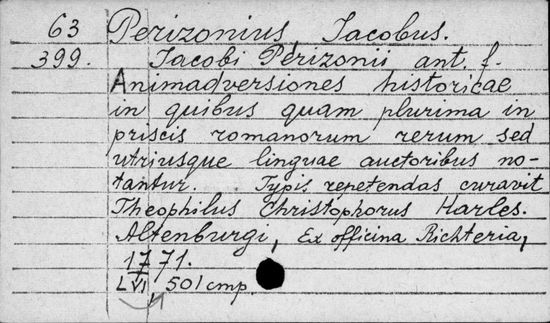 63 Perizonius, Jacobus.
399. Jacobi Perizonii ant. f.
Animadversiones historicae
in quibus quam plurima in
priscis romanorum rerum sed
utriusque linguae auctoribus no-
tantur. Typis repetendas curavit
Theophilus Christophorus Harles.
Altenburgi, Ex officina Richteria,
1771.
LVI, 501 cmp.